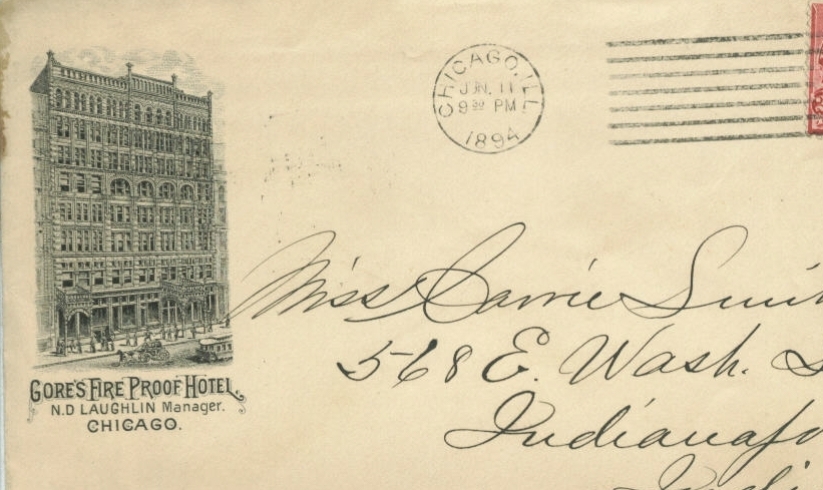 CHICAGO, ILL.
JUN. 11
9 30 PM
1894
Miss Carrie Smit
568 E. Wash. S
Indianapo
Indi
GORE'S FIRE PROOF HOTEL.
N.D LAUGHLIN Manager.
CHICAGO.